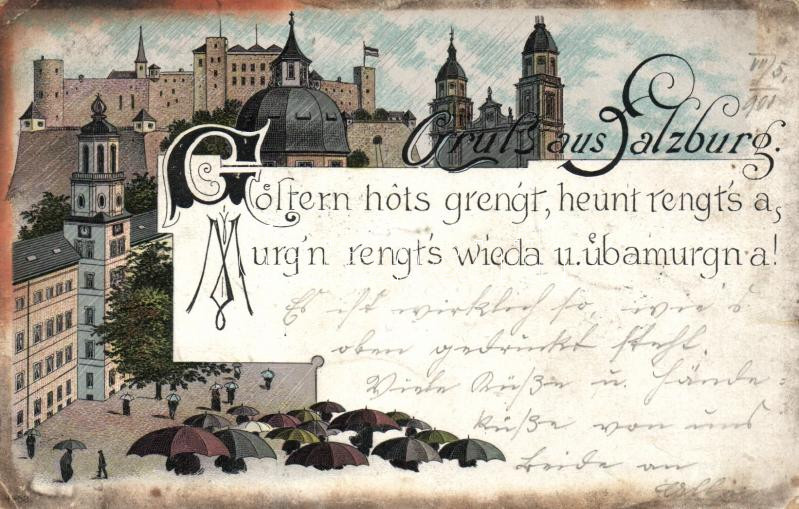 VII/5.
901
Gruß aus Salzburg.
Göstern hôts grengt, heunt rengt's a,
Murg'n rengt's wieda u. übamurgn a!
Es ist wirklich so, wie's
oben gedruckt steht.
Viele Küße u. Hände-
küße von uns
beide an